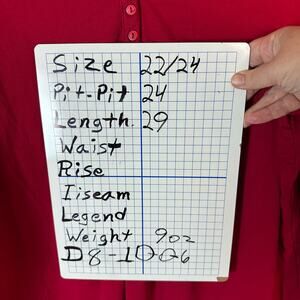 Size 22/24
Pit-Pit 24
Length 29
Waist
Rise
Iiseam
Legend
Weight 9oz